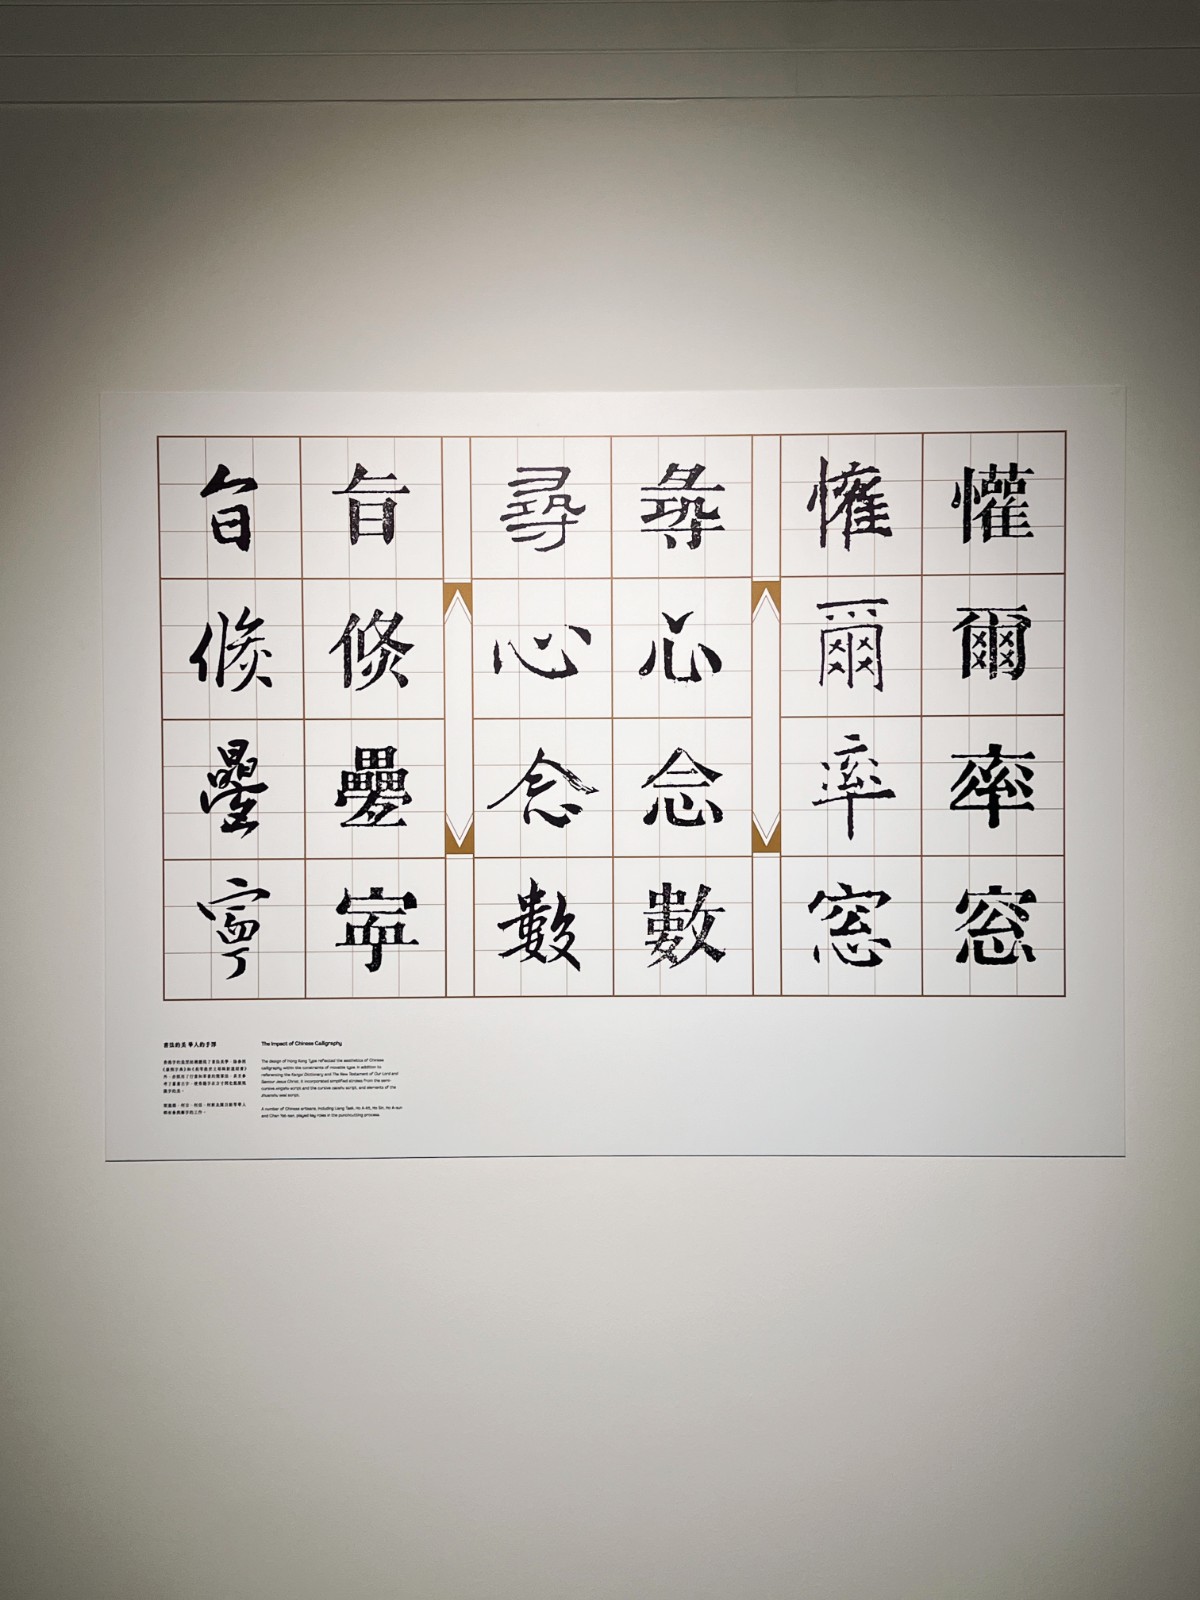 㫖 㫖 尋 尋 懽 懽
倏 倏 心 心 爾 爾
疊 疊 念 念 率 率
寧 寧 數 數 窓 窓
書法的美 華人的手
香港字的造型結構體現了書法美學，除參照
《康熙字典》和《我等救世主耶穌新遺詔書》
外，亦採用了行書和草書的簡筆法，甚至參
考了篆書古字，使香港字在方寸間也能展現
漢字的美。
The Impact of Chinese Calligraphy
The design of Hong Kong Type reflected the aesthetics of Chinese
calligraphy within the constraints of movable type. In addition to
referencing the Kangxi Dictionary and The New Testament of Our Lord and
Saviour Jesus Christ, it incorporated simplified strokes from the semi-
cursive xingshu script and the cursive caoshu script, and elements of the
zhuanshu seal script.
A number of Chinese artisans, including Leang Tsek, Ho A Wt, Ho Sin, Ho A-sun
and Chan Yat-san, played key roles in the punchcutting process.